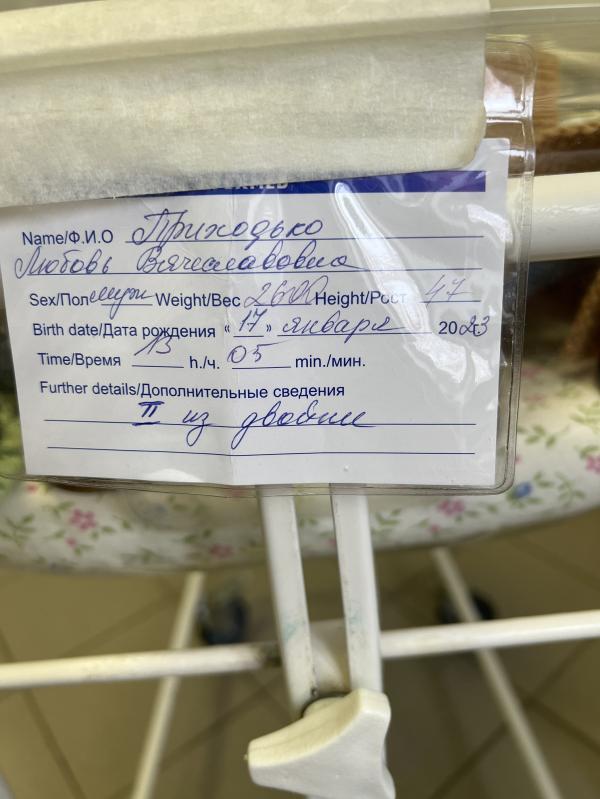 Name/Ф.И.О Приходько
Любовь Вячеславовна
Sex/Пол муж Weight/Вес 2600 Height/Рост 47
Birth date/Дата рождения « 17 » января 2023
Time/Время 13 h./ч. 05 min./мин.
Further details/Дополнительные сведения
II из двойни